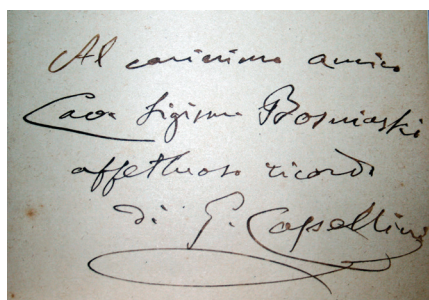 Al carissimo amico
Cav. Sigism. Bosniaski
affettuoso ricordo
di G. Capellini